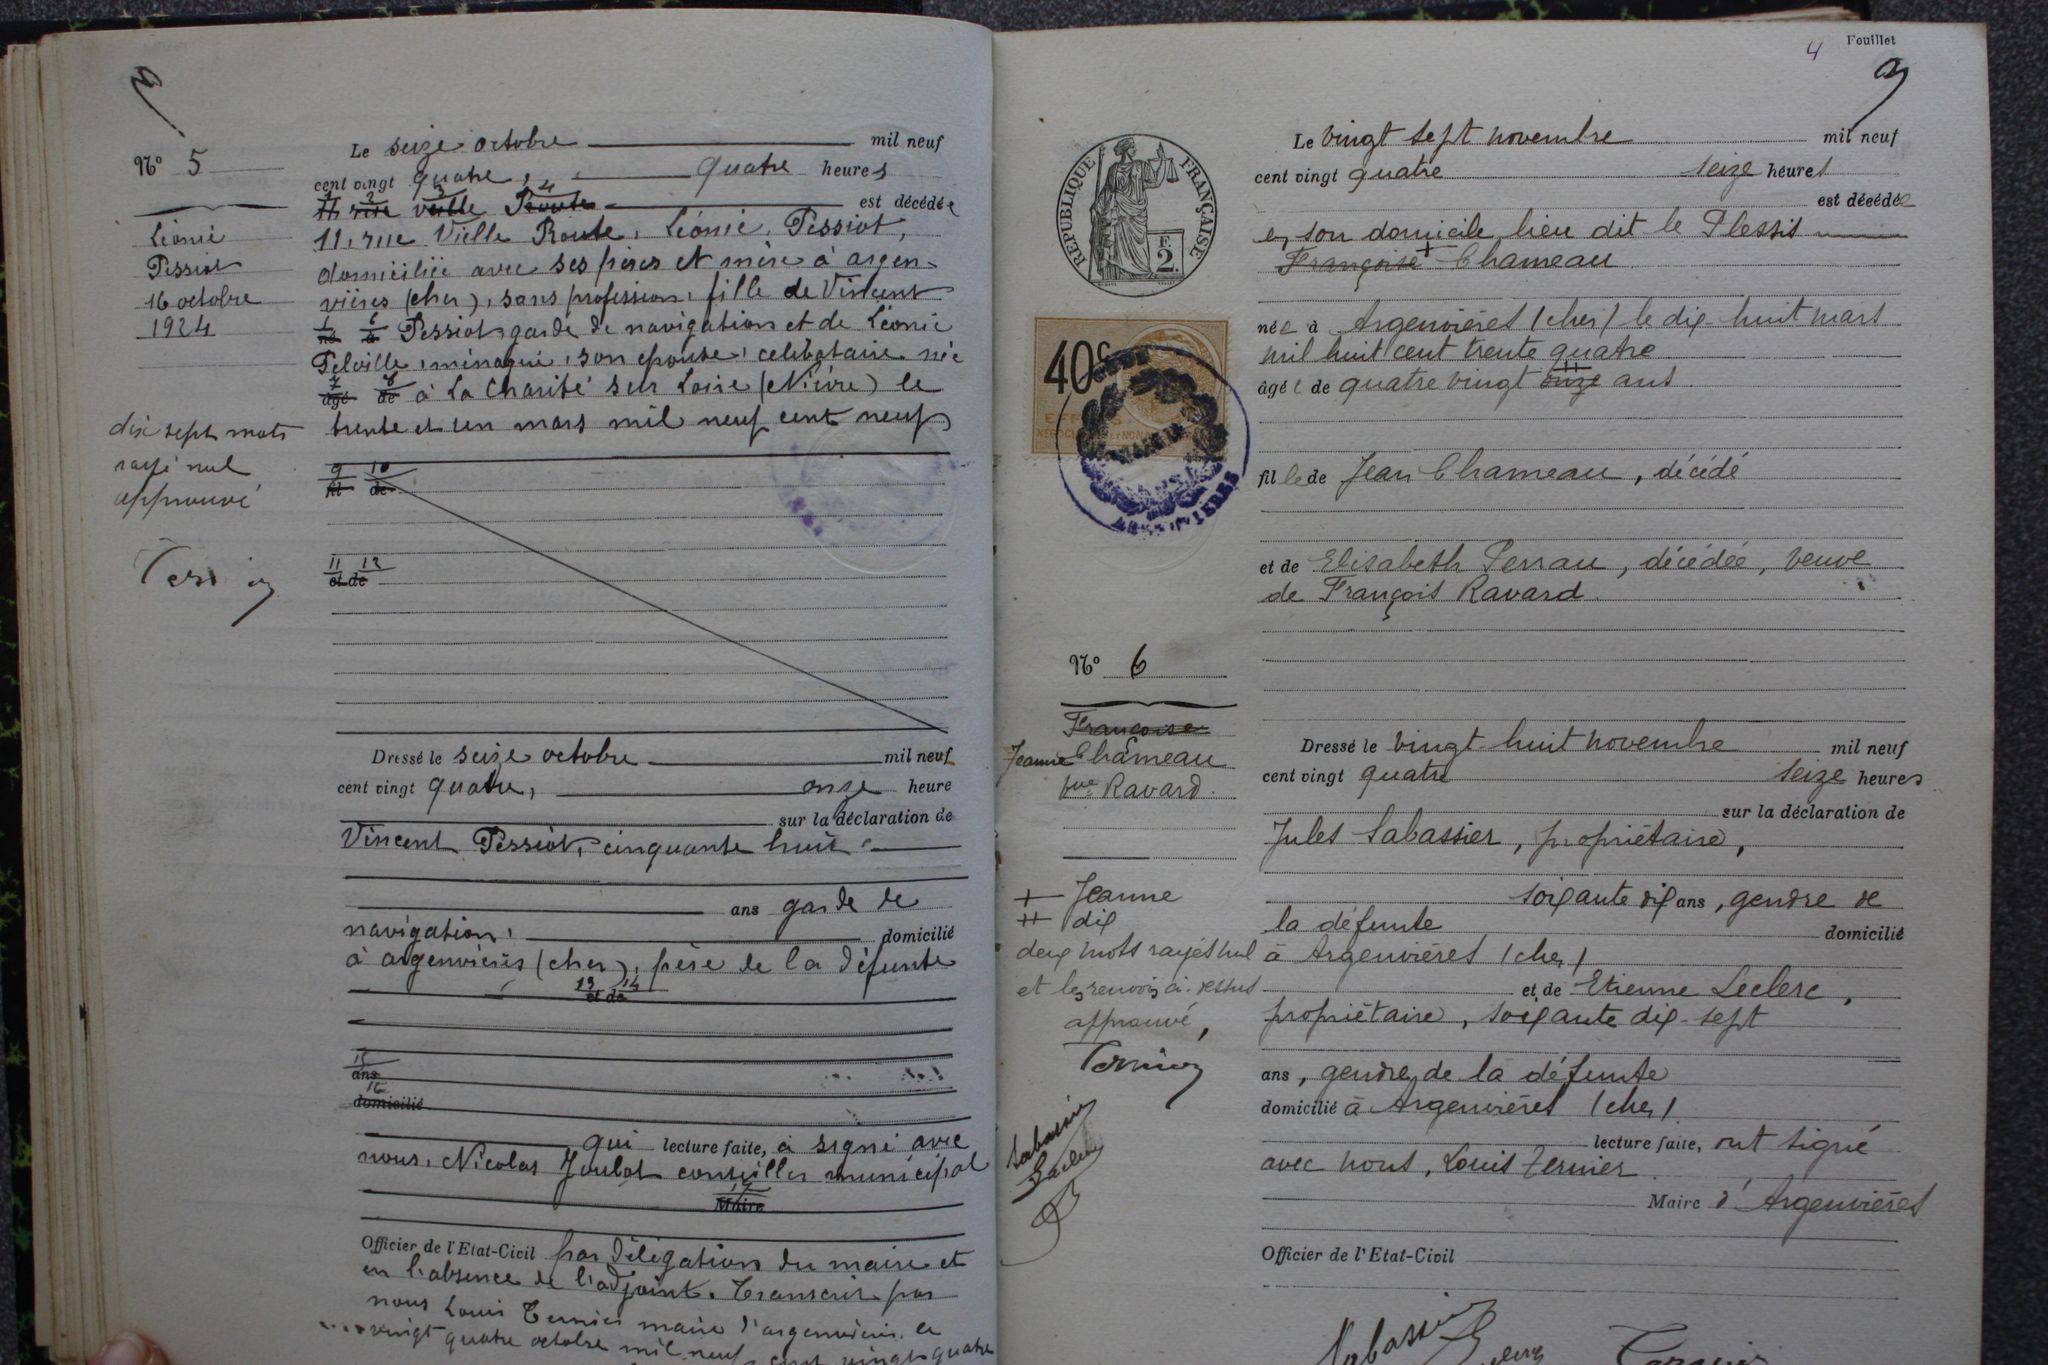 N° 5
Léonie
Pessiot
16 octobre
1924
dix sept mots
rayé nul
approuvé
Le seize octobre mil neuf
cent vingt quatre, quatre heures
1 2 3 4
11 rue vielle Route est décédée
11, rue Vielle Route, Léonie, Pessiot,
domiciliée avec ses pères et mère à argen-
vières (cher), sans profession, fille de Vincent
5 6
né à Pessiot garde de navigation et de Léonie
Pelville, ménagère, son epouse, celibataire née
7 8
âgé de à La Charité sur Loire (Nièvre) le
trente et un mars mil neuf cent neuf
9 10
fil de
11 12
et de
Dressé le seize octobre mil neuf
cent vingt quatre, onze heure
sur la déclaration de
Vincent Pessiot, cinquante huit
ans garde de
navigation, domicilié
à argenvières (cher), père de la défunte
13 14
et de
15
ans
16
domicilié
qui lecture faite, a signé avec
nous, Nicolas Joulot conseiller municipal
17
Maire
Officier de l'Etat-Civil par délégation du maire et
en l'absence de l'adjoint. Transcrit par
nous Louis Ternier maire d'argenvières le
vingt quatre octobre mil neuf cent vingt quatre
4 Feuillet
RÉPUBLIQUE FRANÇAISE
F.
2.
40c
ARGENVIÈRES
N° 6
Françoise
Jeanne Chameau
Vve Ravard.
+ Jeanne
++ dix
deux mots rayés nul
et les renvois ci-dessus
approuvé,
Ternier
Labassier
Leclerc
Le vingt sept novembre mil neuf
cent vingt quatre seize heures
est décédée
en son domicile lieu dit le Plessis
Françoise + Chameau
née à Argenvières (cher) le dix-huit mars
mil huit cent trente quatre
âgée de quatre vingt onze ++ ans
fille de Jean Chameau, décédé
et de Elisabeth Perrau, décédée, veuve
de François Ravard.
Dressé le vingt-huit novembre mil neuf
cent vingt quatre seize heures
sur la déclaration de
Jules Labassier, propriétaire,
soixante dix ans, gendre de
la défunte domicilié
à Argenvières (cher)
et de Etienne Leclerc,
propriétaire, soixante dix-sept
ans, gendre de la défunte
domicilié à Argenvières (cher)
lecture faite, ont signé
avec nous, Louis Ternier
Maire d'Argenvières
Officier de l'Etat-Civil
Labassier
Leclerc
Ternier